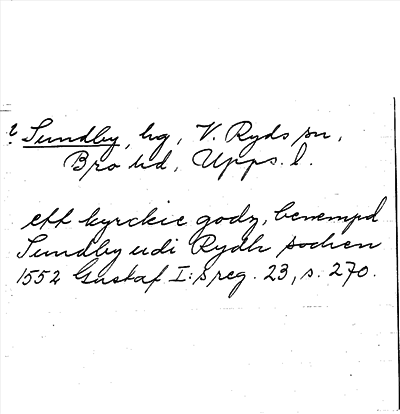 ? Sundby, hg, V. Ryds sn,
Bro hd, Upps. l.
ett kyrckie godz, benempd
Sundby udi Rydh sochen
1552 Gustaf I:s reg. 23, s. 270.